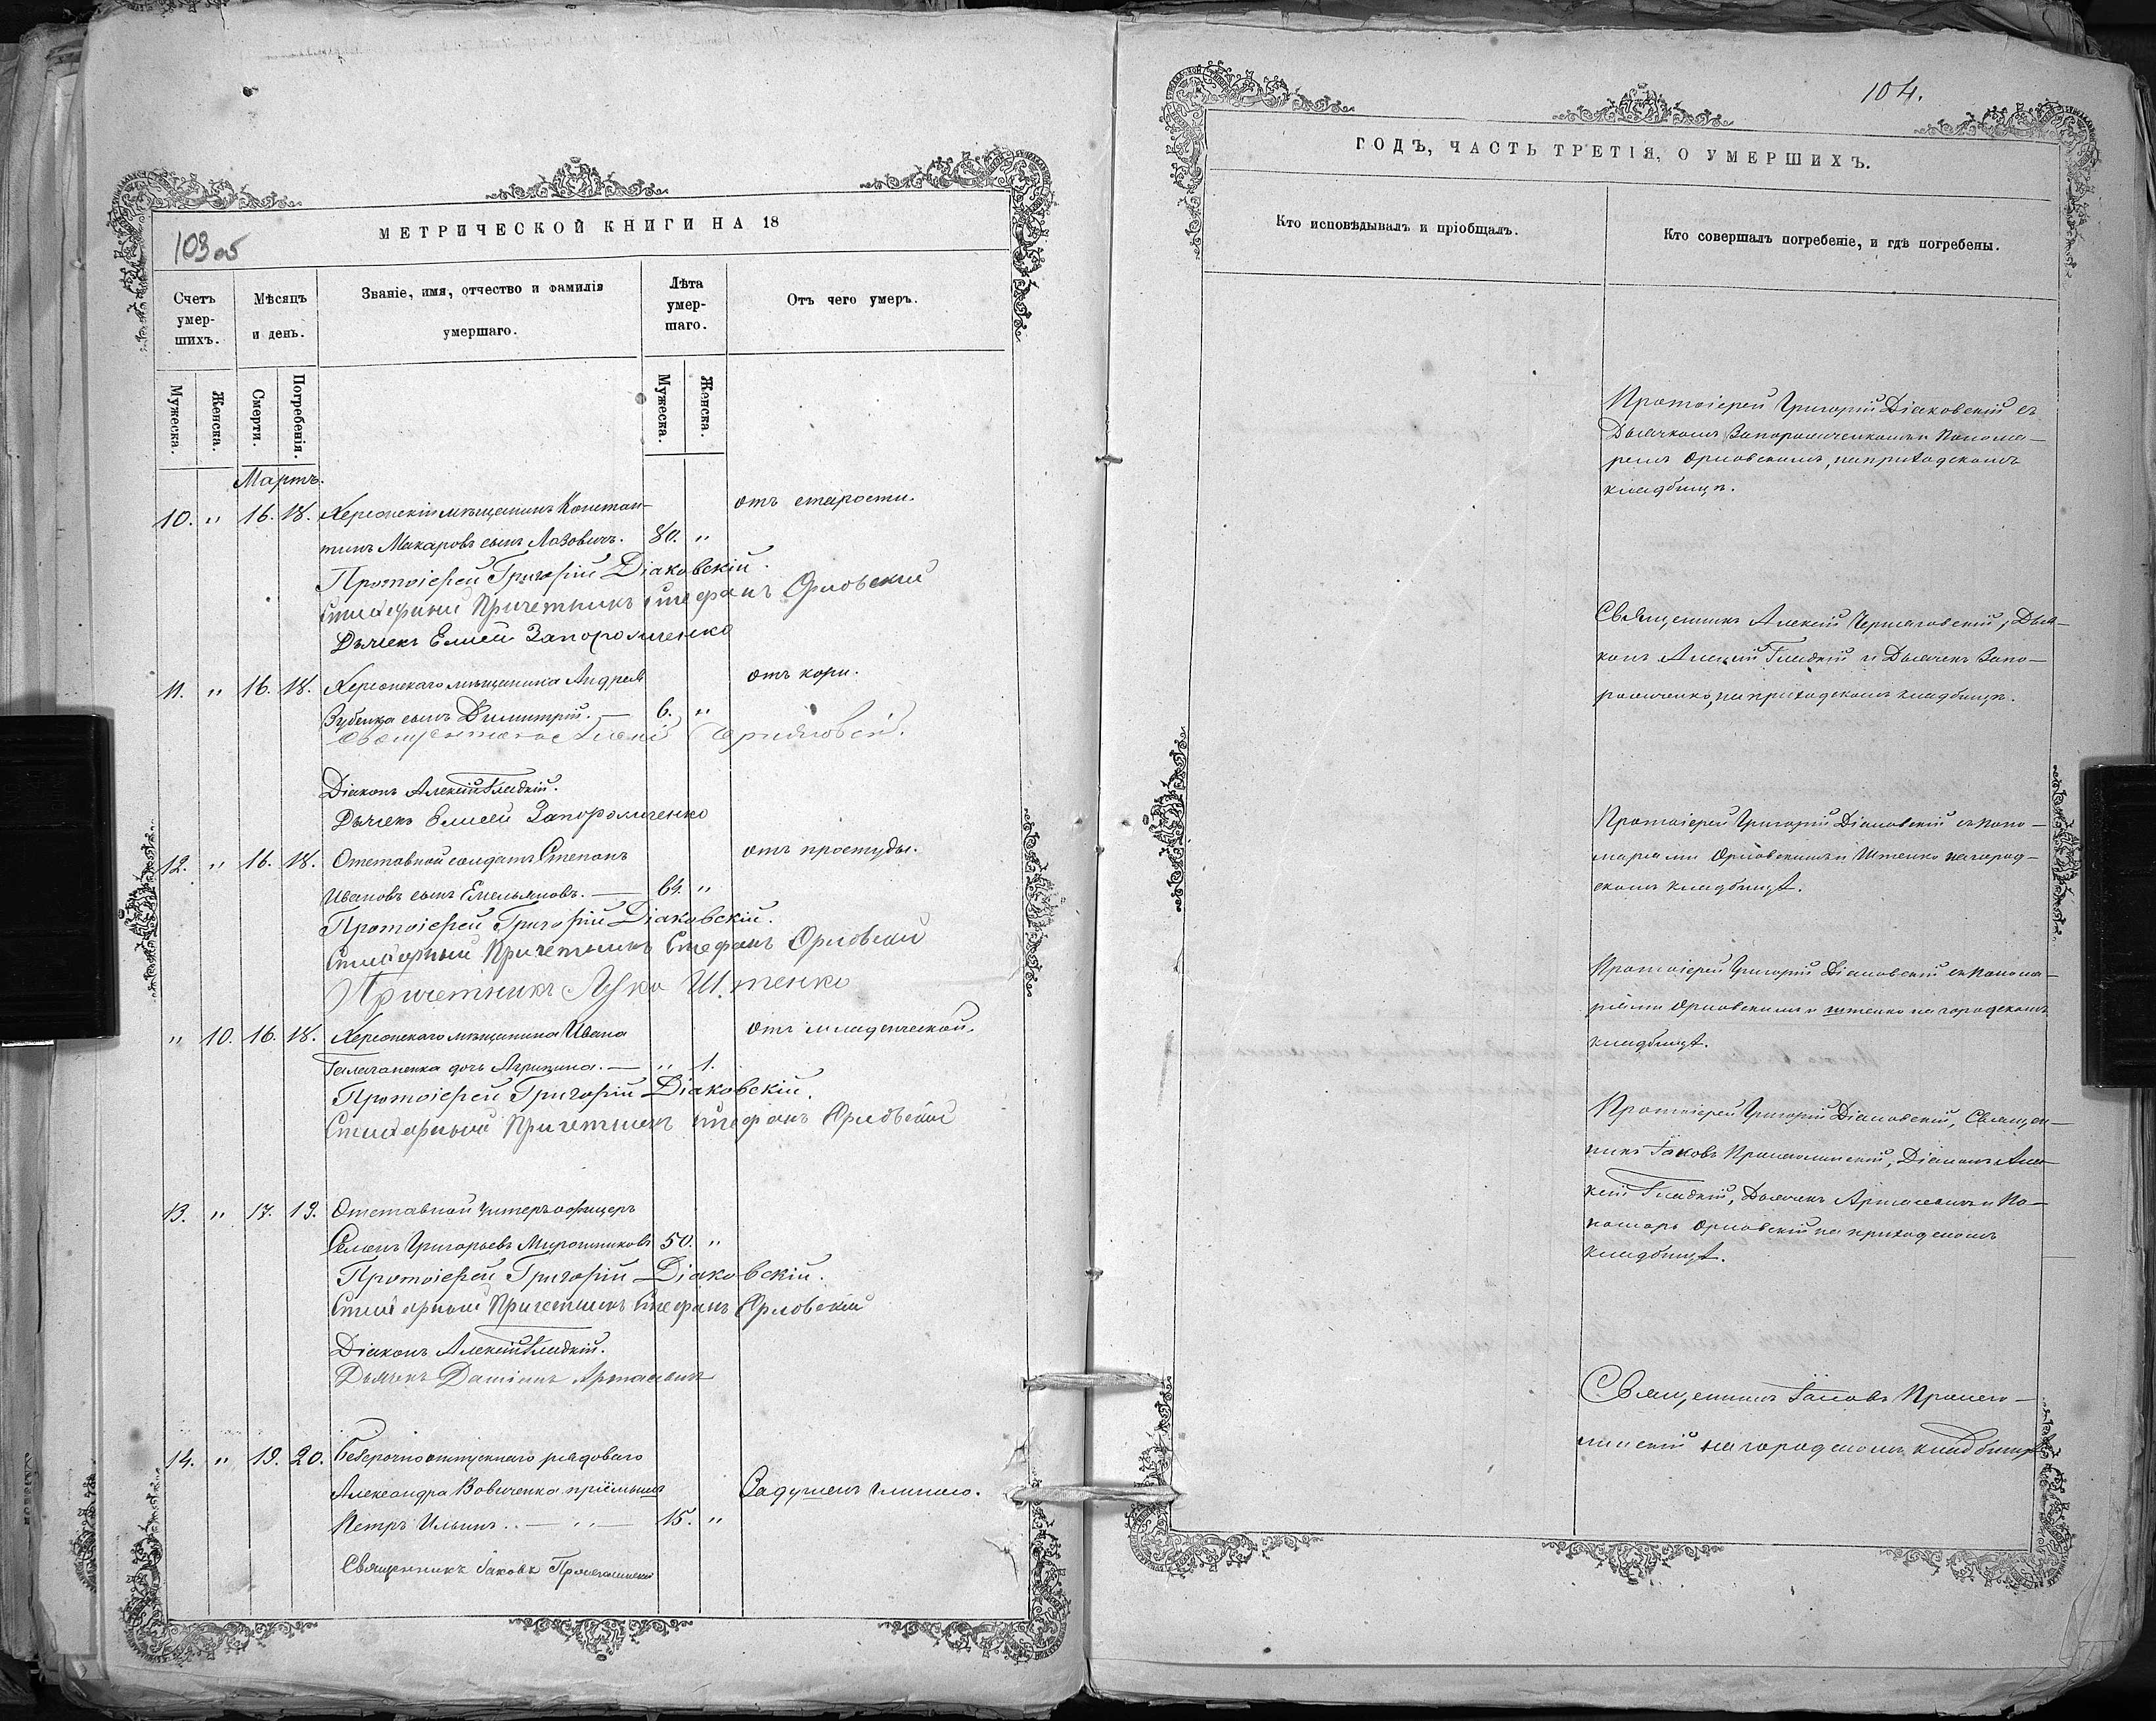 МЕТРИЧЕСКОЙ КНИГИ НА 18
103 об
Счетъ умер-шихъ.
Мѣсяцъ и день.
Званіе, имя, отчество и фамилія умершаго.
Лѣта умер-шаго.
Отъ чего умеръ.
Мужеска.
Женска.
Смерти.
Погребенія.
Мужеска.
Женска.
Мартъ.
10. " 16. 18. Херсонскій мѣщанинъ Констан- отъ старости.
тинъ Макаровъ сынъ Лазовичъ. 80. "
Протоіерей Григорій Діаковскій.
Стихарный Причетникъ Стефанъ Орловскій
Дьячекъ Елисей Запорощенко
11. " 16. 18. Херсонскаго мѣщанина Андрея отъ кори.
Зубенка сынъ Димитрій. — 6. "
Діаконъ Алексій Гладкій.
Дьячекъ Елисей Запорощенко
12. " 16. 18. Отставной солдатъ Степанъ отъ простуды.
Ивановъ сынъ Емельяновъ. — 64. "
Протоіерей Григорій Діаковскій.
Стихарный Причетникъ Стефанъ Орловскій
Причетникъ Лука Штенко
" 10. 16. 18. Херсонскаго мѣщанина Ивана отъ младенческой.
дочь Агрипина. — " 1.
Протоіерей Григорій Діаковскій.
Стихарный Причетникъ Стефанъ Орловскій
13. " 17. 19. Отставной унтеръ офицеръ
Семенъ Григорьевъ Мирошниковъ 50. "
Протоіерей Григорій Діаковскій.
Стихарный Причетникъ Стефанъ Орловскій
Діаконъ Алексій Гладкій.
Дьячекъ Даміанъ Артасевичъ
14. " 19. 20. Безсрочно отпускнаго рядоваго
Александра Вовиченка пріемышъ Задушенъ глиною.
Петръ Ильинъ. — " — 15. "
Священникъ Іаковъ
104.
ГОДЪ, ЧАСТЬ ТРЕТІЯ, О УМЕРШИХЪ.
Кто исповѣдывалъ и пріобщалъ.
Кто совершалъ погребеніе, и гдѣ погребены.
Протоіерей Григорій Діаковскій съ
Дьячкомъ Запорощенкомъ и Понома-
ремъ Орловскимъ, на приходскомъ
кладбищѣ.
Священникъ Алексій Черняховскій, Діа-
конъ Алексій Гладкій и Дьячекъ Запо-
рощенко, на приходскомъ кладбищѣ.
Протоіерей Григорій Діаковскій съ Поно-
марями Орловскимъ и Штенко на город-
скомъ кладбищѣ.
Протоіерей Григорій Діаковскій съ Понома-
рями Орловскимъ и Штенко на городскомъ
кладбищѣ.
Протоіерей Григорій Діаковскій, Священ-
никъ Іаковъ Діаконъ Але-
ксій Гладкій, Дьячекъ Артасевичъ и По-
номарь Орловскій на приходскомъ
кладбищѣ.
Священникъ Іаковъ
на городскомъ кладбищѣ